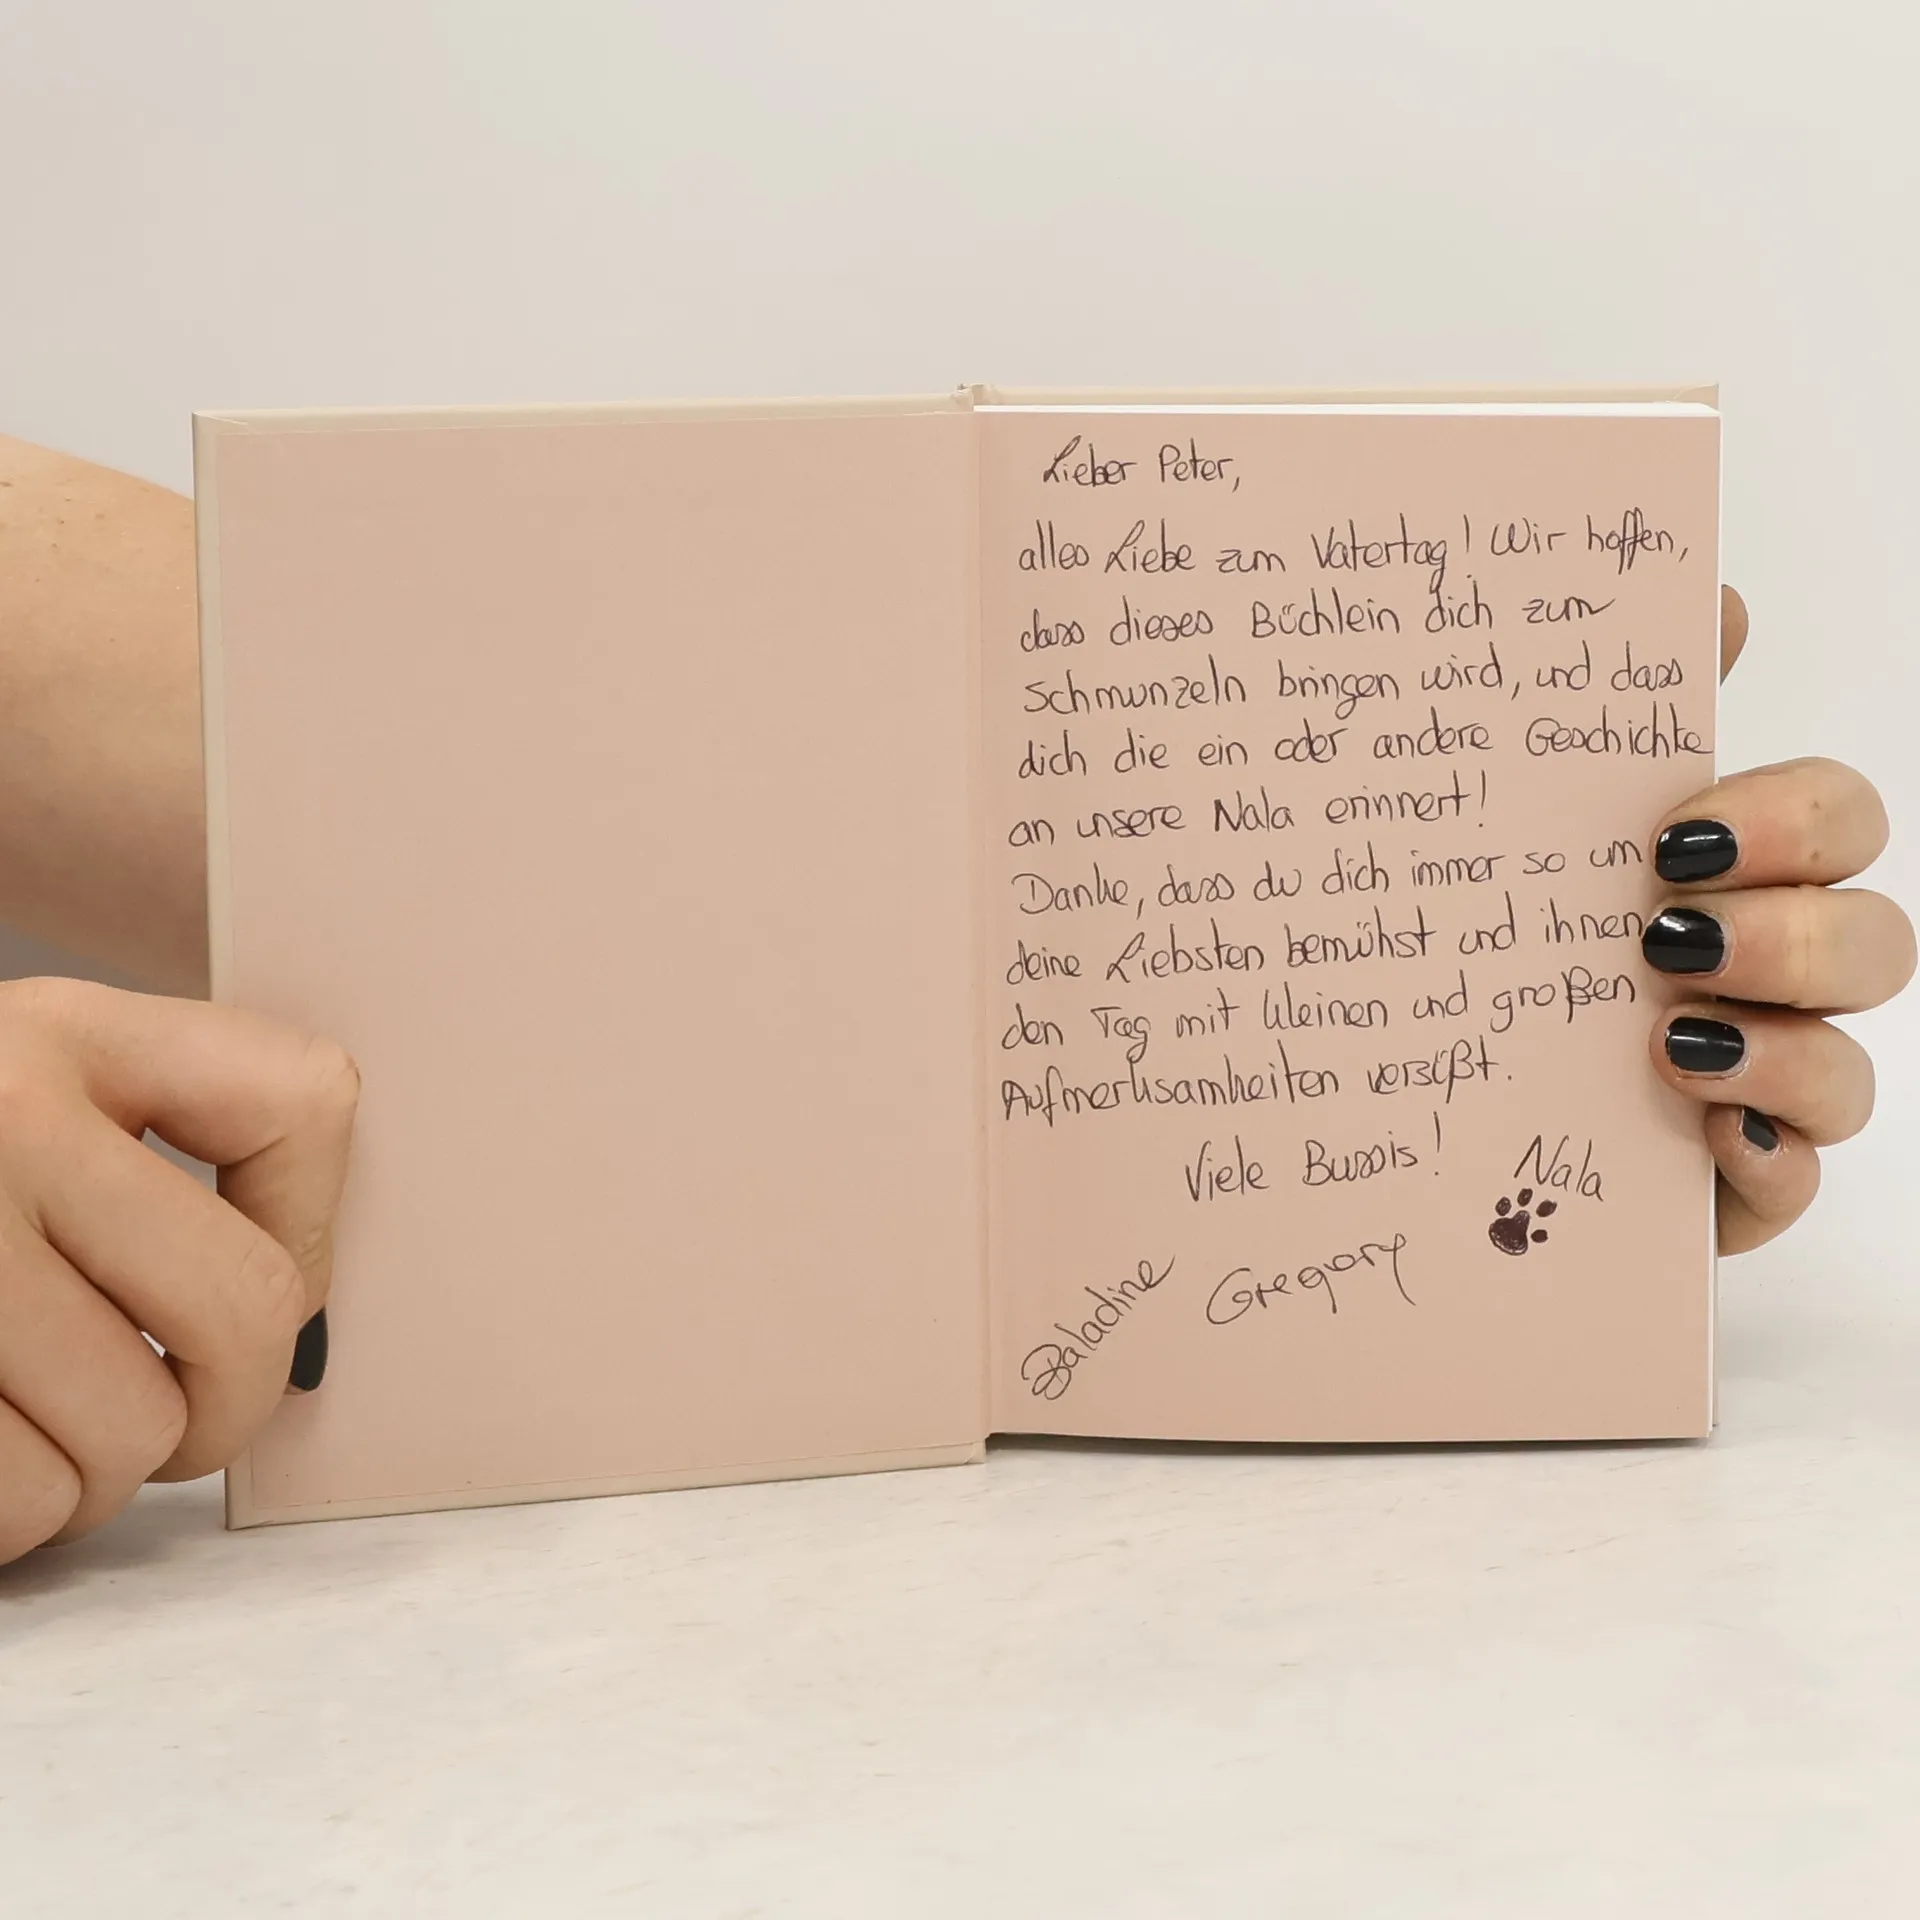 Lieber Peter,
alles Liebe zum Vatertag! Wir hoffen,
dass dieses Büchlein dich zum
Schmunzeln bringen wird, und dass
dich die ein oder andere Geschichte
an unsere Nala erinnert!
Danke, dass du dich immer so um
deine Liebsten bemühst und ihnen
den Tag mit kleinen und großen
Aufmerksamkeiten versüßt.
Viele Bussis!
Nala
Baladine
Gregory